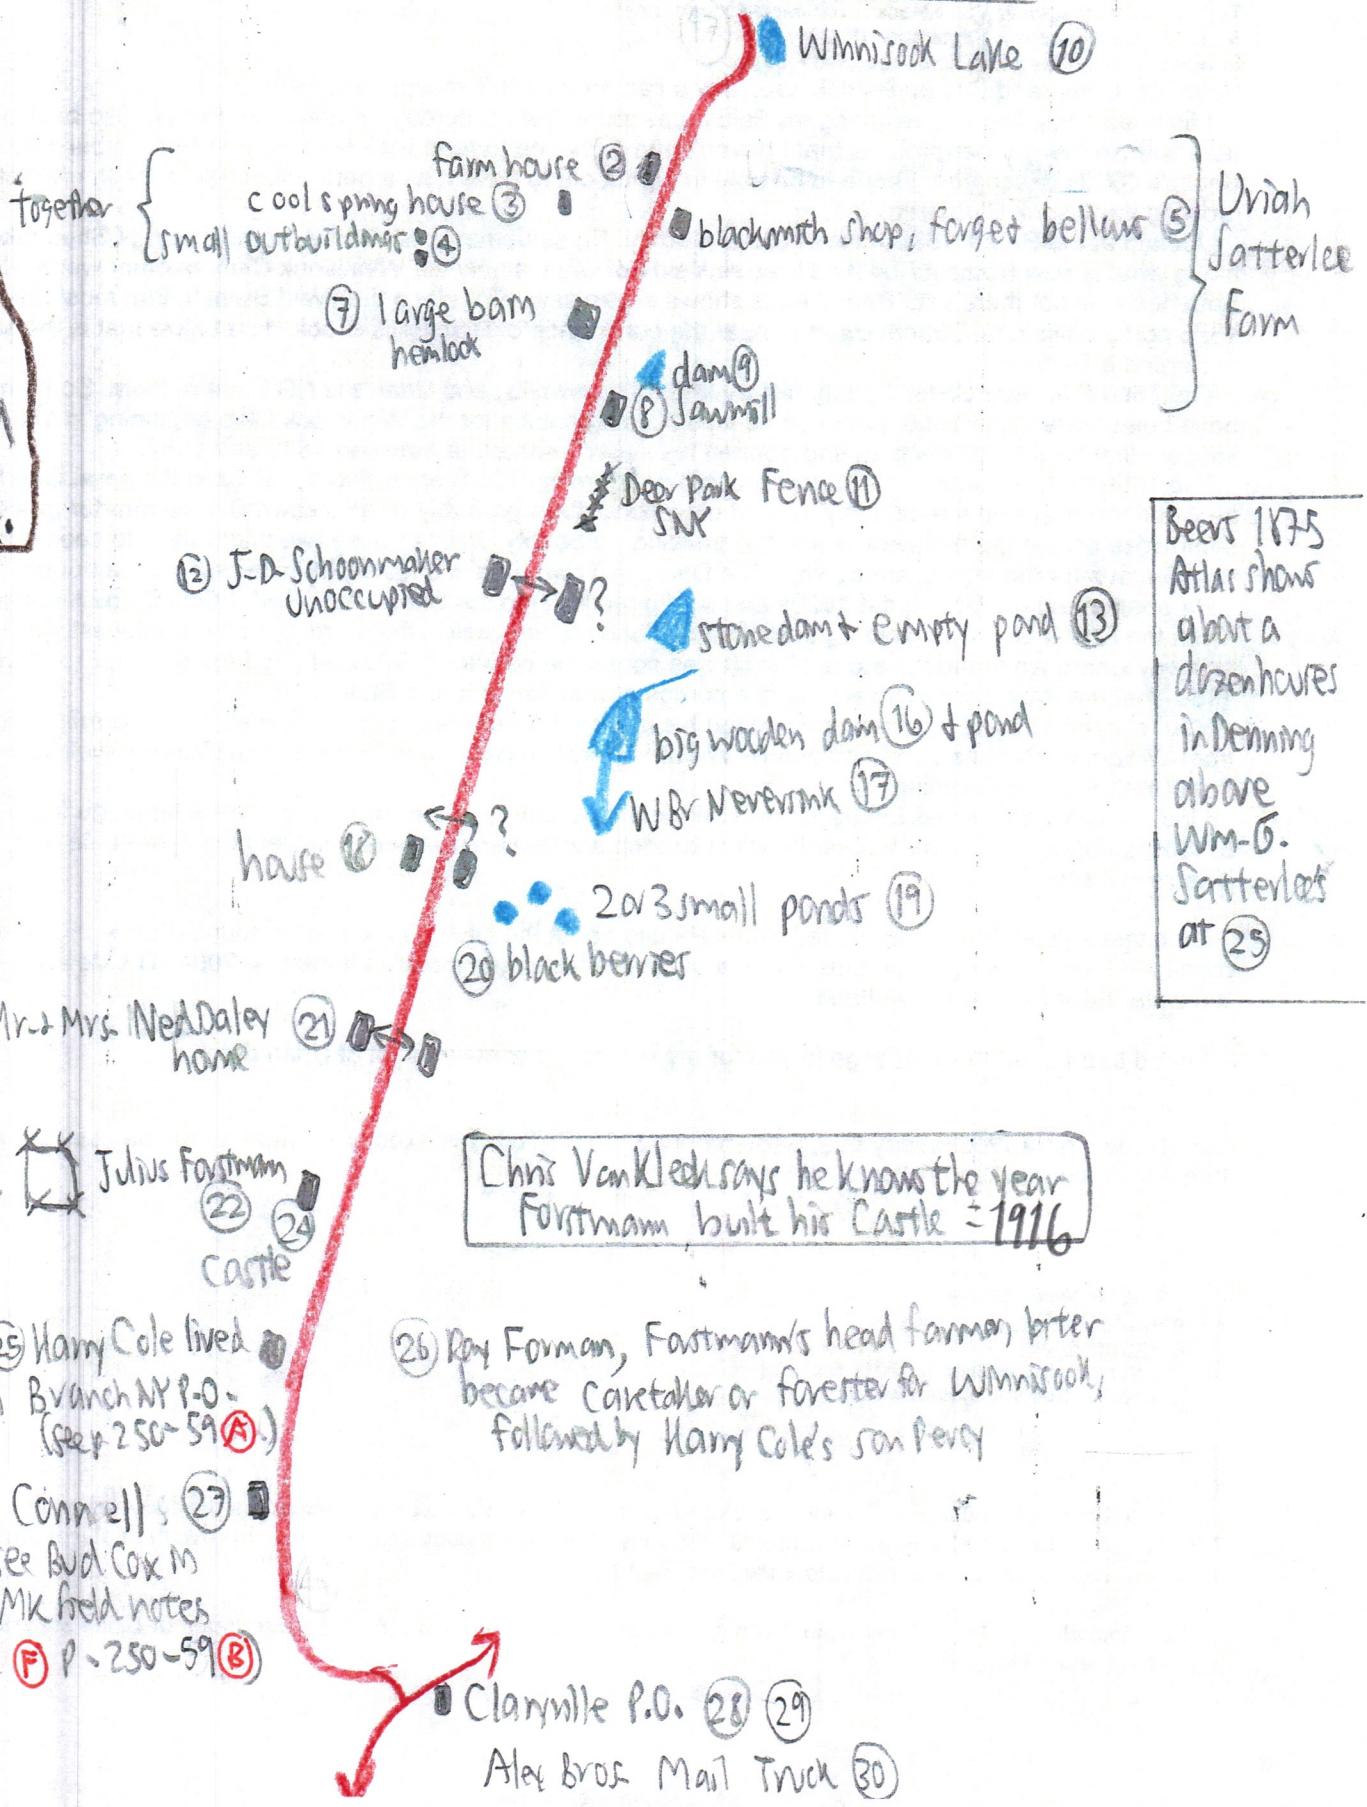 Winnisook Lake 10
Farm house 2
together
cool spring house 3
small outbuildings 4
blacksmith shop, forge & bellows 5
Uriah
Satterlee
Farm
7 large barn
hemlock
dam 9
8 sawmill
Deer Park Fence 11
SNK
12 J-D-Schoonmaker
Unoccupied
?
stone dam & empty pond 13
big wooden dam 16 & pond
W Br Neversink 17
Beers 1875
Atlas shows
about a
dozen houses
in Denning
above
Wm-G.
Satterlee's
at 25
house 18
?
2 or 3 small ponds 19
20 black berries
Mr. & Mrs. Ned Daley 21
home
Julius Forstmann
22
24
Castle
Chris VanKleek says he knows the year
Forstmann built his Castle = 1916
25 Harry Cole lived
Branch NY P.O.
(see p 250-59 A)
26 Ray Forman, Forstmann's head farmer, later
became caretaker or forester for Winnisook,
followed by Harry Cole's son Percy
Connell 27
see Bud Cox in
MK field notes
F P. 250-59 B)
Claryville P.O. 28 29
Alex Bros Mail Truck 30